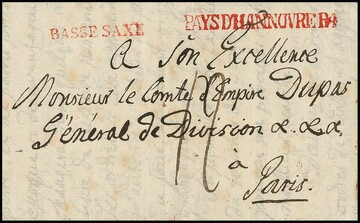 BASSE SAXE
PAYS D'HANNOUVRE No 4
A Son Excellence
Monsieur le Comte d'Empire Dupas
Général de Division &. &. &.
à
Paris.